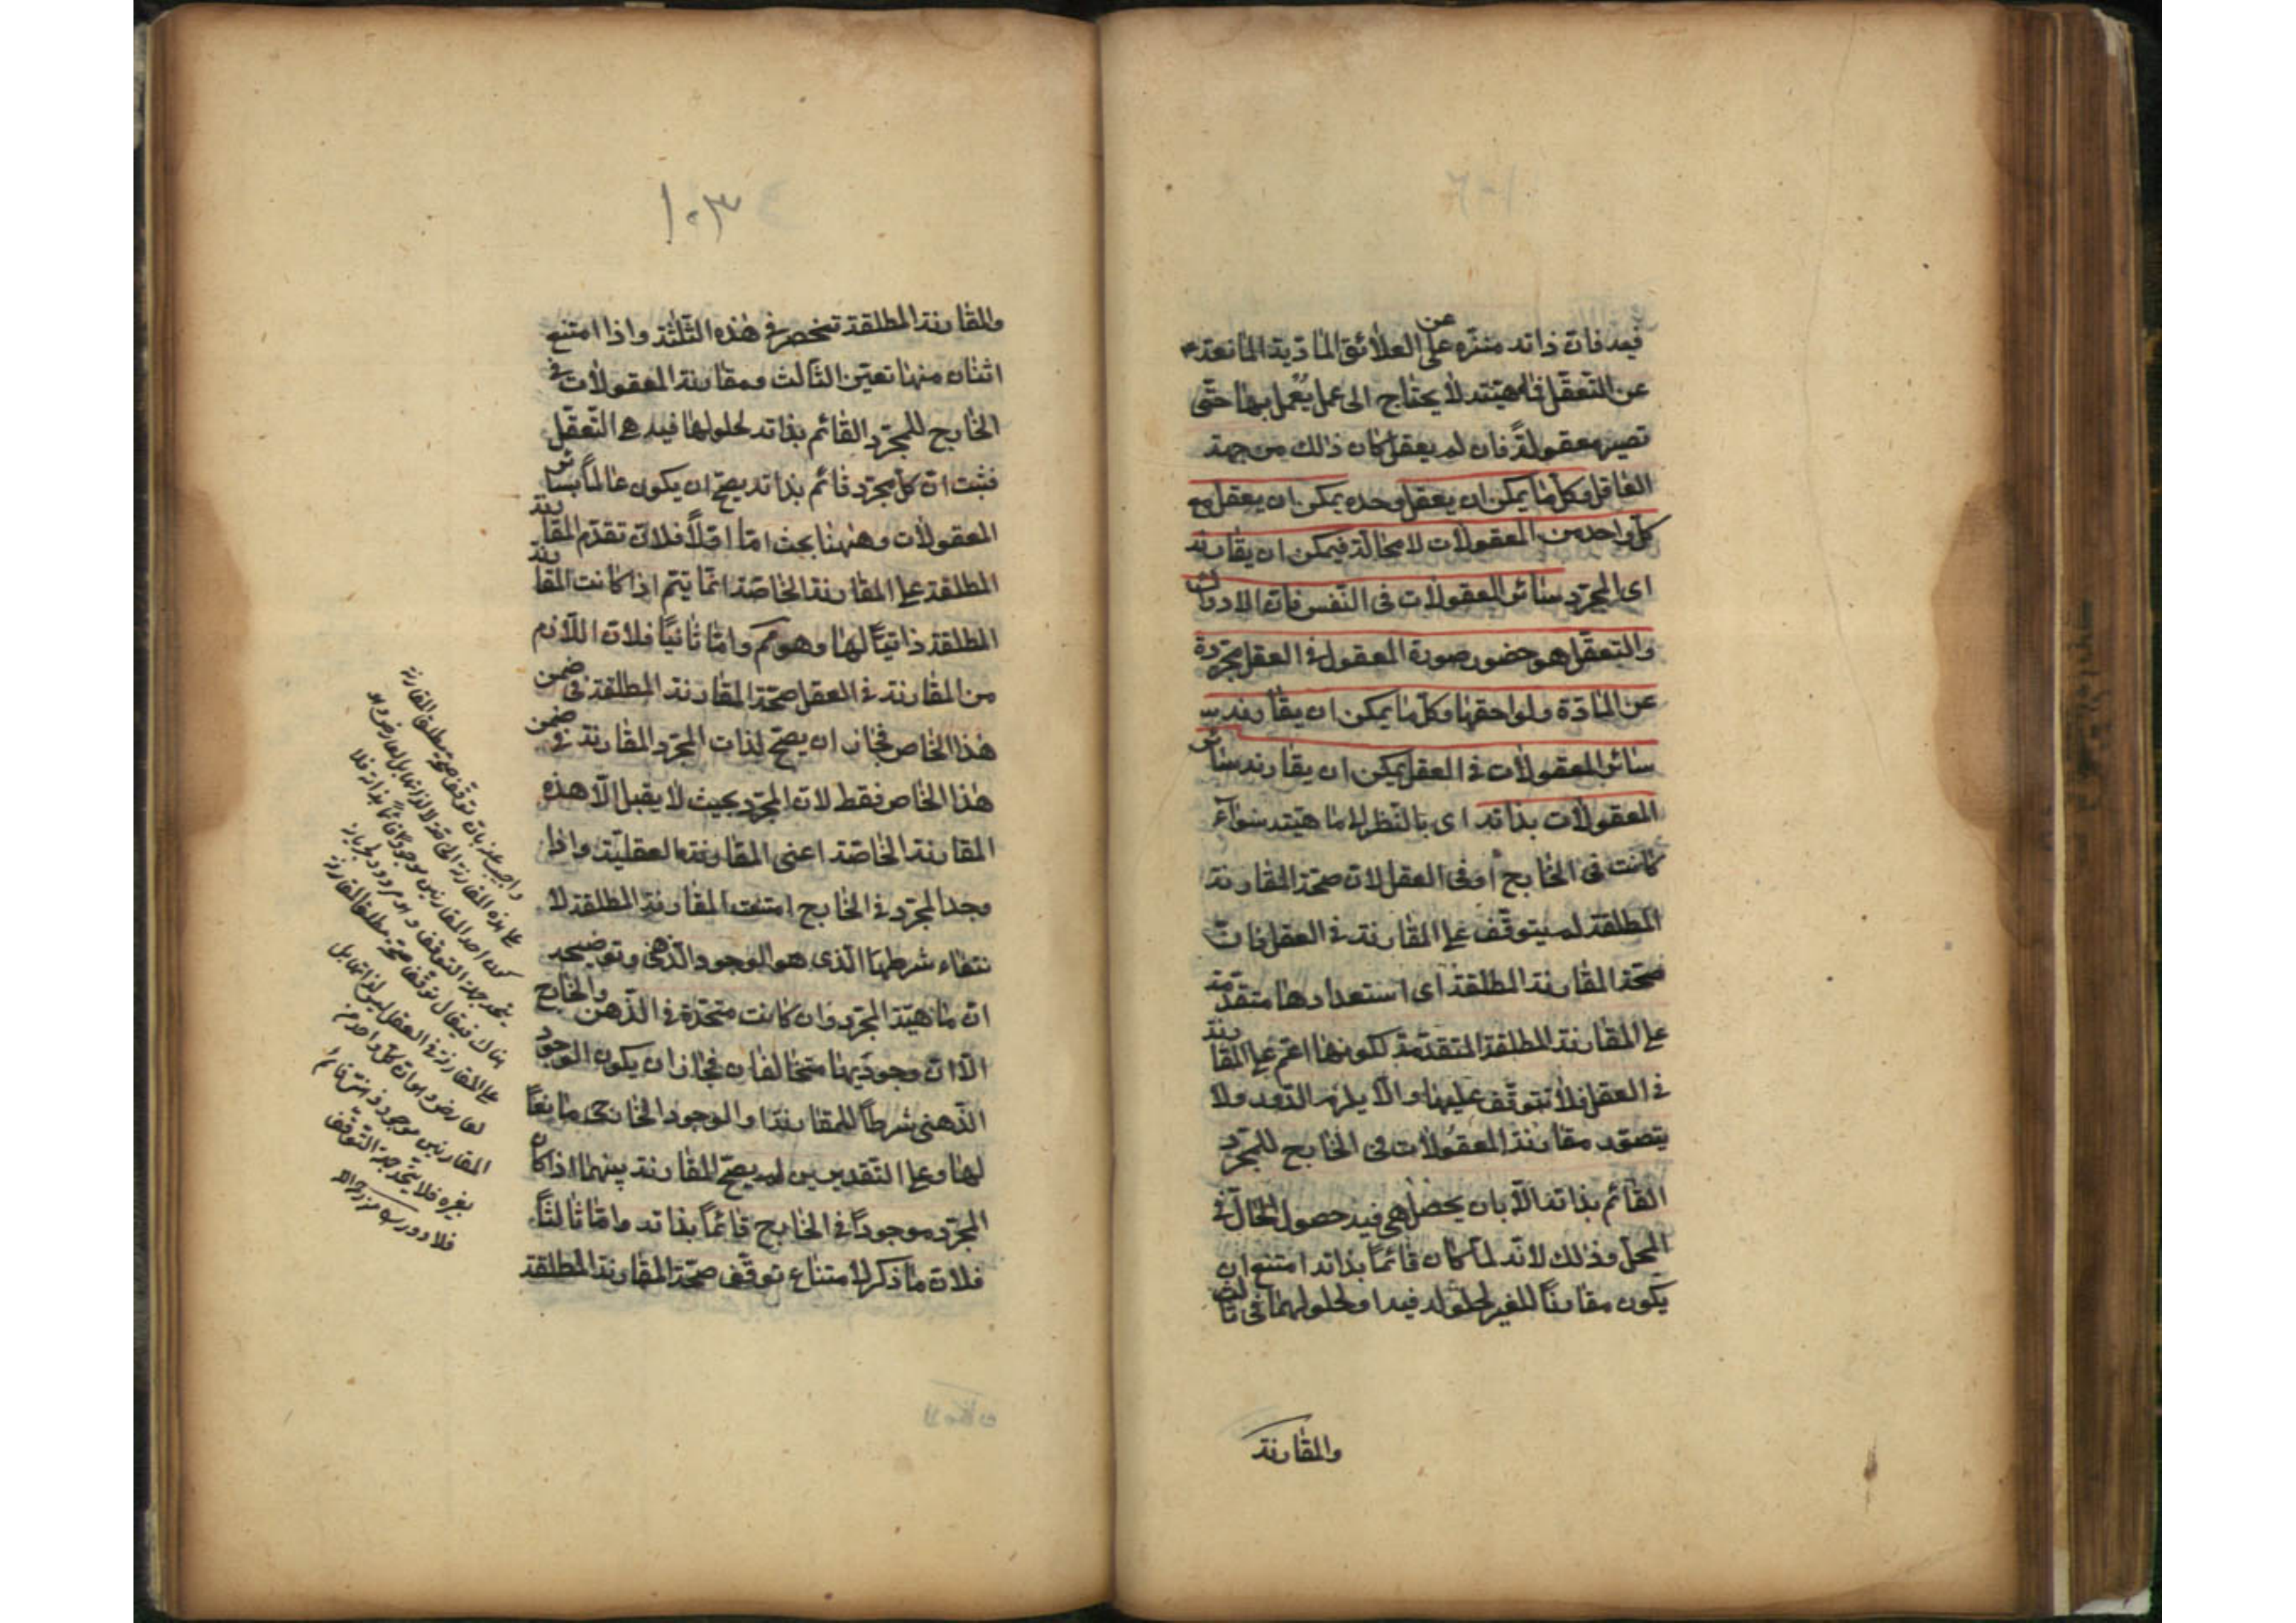 فيه فان ذاته منزه على العلائق المادية المانعة
عن
عن التعقل فماهيته لا يحتاج الى عمل يعمل بها حتى
تصير معقولة فان لم يعقل كان ذلك من جهة
العاقل وكل ما يمكن ان يعقل وحده يمكن ان يعقل مع
كل واحد من المعقولات لا محالة فيمكن ان يقارنه
اى المجرد سائر المعقولات فى النفس فان الادراك
والتعقل هو حضور صورة المعقول فى العقل مجردة
عن المادة ولواحقها وكل ما يمكن ان يقارنه
سائر المعقولات فى العقل يمكن ان يقارنه سائر
المعقولات بذاته اى بالنظر الى ماهيته سواء
كانت فى الخارج او فى العقل لان صحة المقارنة
المطلقة لم يتوقف على المقارنة فى العقل فان
صحة المقارنة المطلقة اى استعدادها متقدمة
على المقارنة المطلقة المتقدمة لكونها اعم على المقارنة
فى العقل فلا تتوقف عليها والا يلزم الدور ولا
يتصور مقارنة المعقولات فى الخارج للمجرد
القائم بذاته الا بان يحصل هى فيه حصول الحال فى
المحل وذلك لانه لما كان قائما بذاته امتنع ان
يكون مقارنا للغير لحلوله فيه او لحلولهما فى ثالث
والمقارنة
١٠٣
والمقارنة المطلقة تنحصر فى هذه الثلثة واذا امتنع
اثنان منها تعين الثالث ومقارنة المعقولات فى
الخارج للمجرد القائم بذاته لحلولها فيه هى التعقل
فثبت ان كل مجرد قائم بذاته يصح ان يكون عالما بسائر
المعقولات وههنا بحث اما اولا فلان تقدم المقارنة
المطلقة على المقارنة الخاصة انما يتم اذا كانت المقارنة
المطلقة ذاتيا لها وهو مم واما ثانيا فلان اللازم
من المقارنة فى العقل صحة المقارنة المطلقة فى ضمن
هذا الخاص فجاز ان يصح لذات المجرد المقارنة فى ضمن
هذا الخاص فقط لان المجرد بحيث لا يقبل الا هذه
المقارنة الخاصة اعنى المقارنة العقلية واذا
وجد المجرد فى الخارج امتنعت المقارنة المطلقة لا
نتفاء شرطها الذى هو الوجود الذهنى وتوضيحه
ان ماهية المجرد وان كانت متحدة فى الذهن والخارج
الا ان وجوديهما متخالفان فجاز ان يكون الوجود
الذهنى شرطا للمقارنة والوجود الخارجى مانعا
لها وعلى التقديرين لم يصح المقارنة بينهما اذا كان
المجرد موجودا فى الخارج قائما بذاته واما ثالثا
فلان ما ذكر لامتناع توقف صحة المقارنة المطلقة
واجيب عنه بان توقف صحة مطلق المقارنة
على هذه المقارنة
كون احد المقارنين موجودا قائما بذاته فلا
يتحد جهة التوقف
هناك فيقال توقف صحة مطلق المقارنة
على المقارنة فى العقل ليس لذاتها بل
لعارض وهو ان كل واحد من
المقارنين موجود فى
بغيره فلا يتحد جهة التوقف
فلا دور